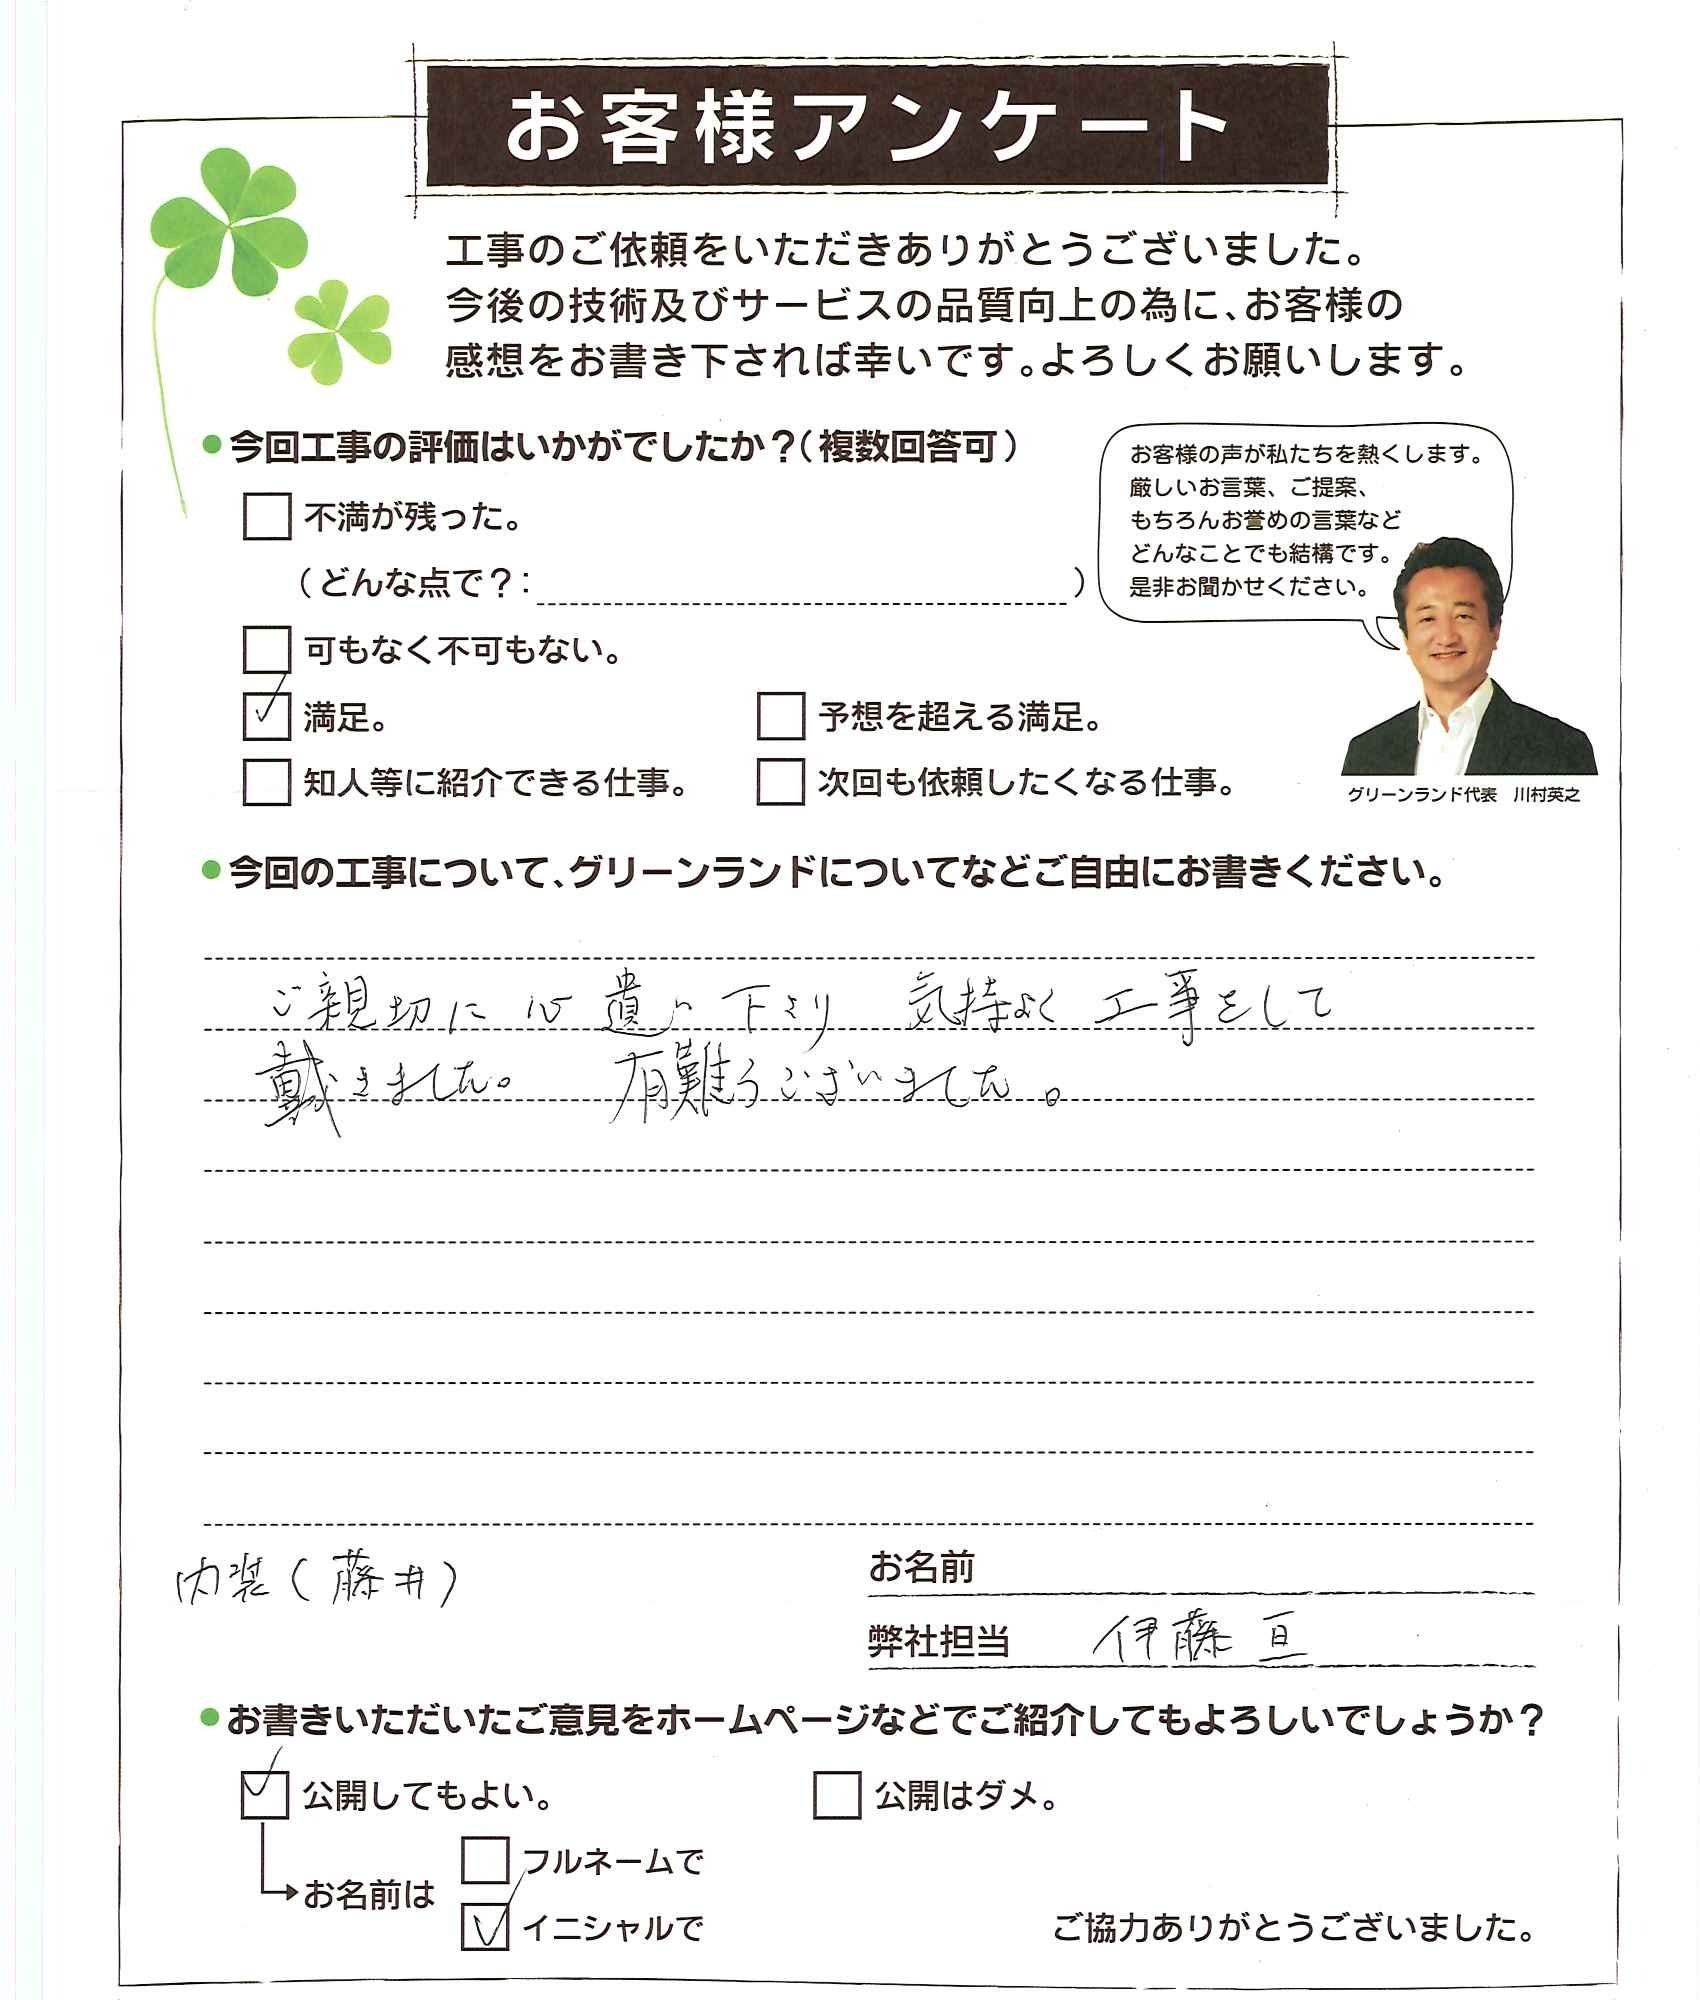 お客様アンケート
工事のご依頼をいただきありがとうございました。
今後の技術及びサービスの品質向上の為に、お客様の
感想をお書き下されば幸いです。よろしくお願いします。
●今回工事の評価はいかがでしたか？（複数回答可）
不満が残った。
（どんな点で？：　　　）
可もなく不可もない。
満足。
予想を超える満足。
知人等に紹介できる仕事。
次回も依頼したくなる仕事。
お客様の声が私たちを熱くします。
厳しいお言葉、ご提案、
もちろんお誉めの言葉など
どんなことでも結構です。
是非お聞かせください。
グリーンランド代表　川村英之
●今回の工事について、グリーンランドについてなどご自由にお書きください。
ご親切に 心遣い下さり 気持よく 工事をして
戴きました。 有難うございました。
内装（藤井）
お名前
弊社担当 伊藤 亘
●お書きいただいたご意見をホームページなどでご紹介してもよろしいでしょうか？
公開してもよい。
公開はダメ。
お名前は
フルネームで
イニシャルで
ご協力ありがとうございました。